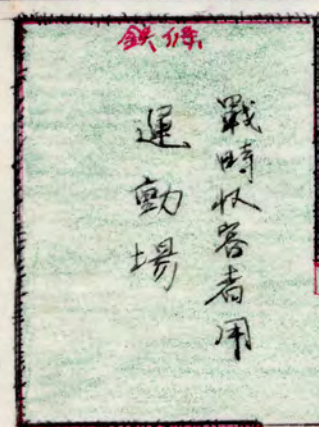 鉄條
戰時収容者用
運動場